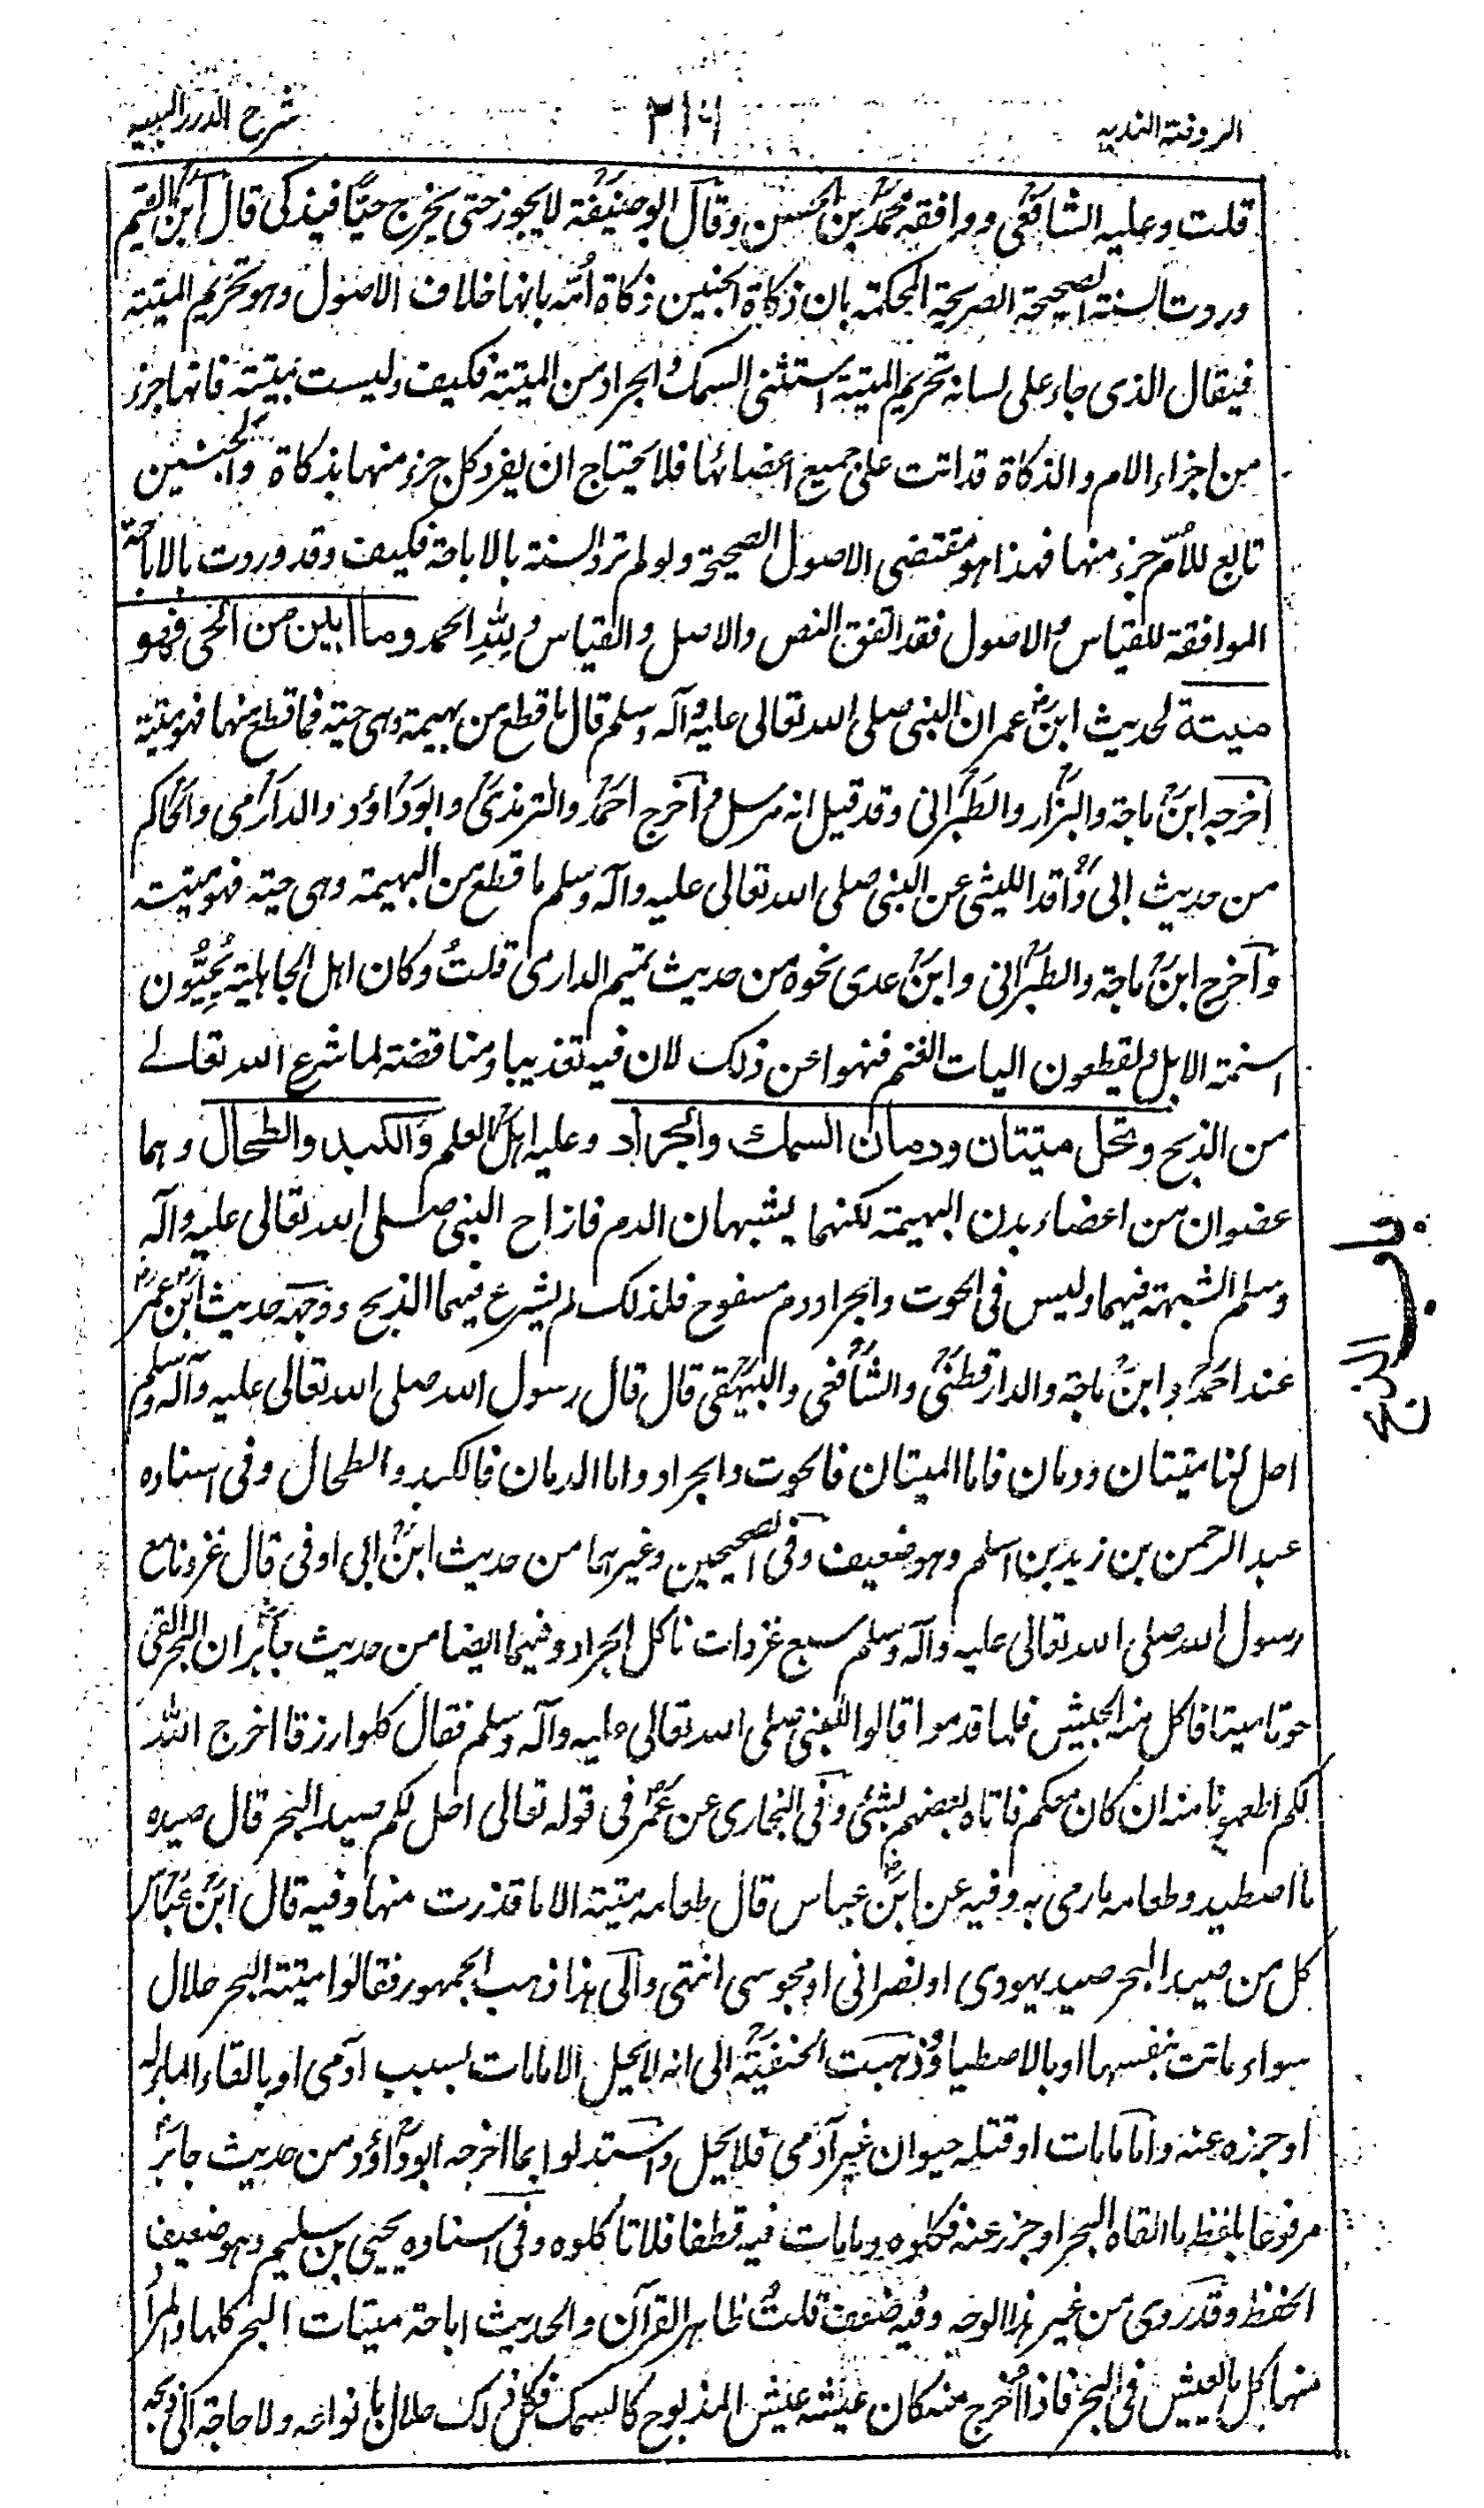 الروضة الندية
٣١٦
شرح الدرر البهية
قلت وعليه الشافعى ووافقه محمد بن الحسن وقال ابو حنيفة لا يجوز حتى يخرج حيا فيذكى قال ابن القيم
وردت السنة الصحيحة الصريحة المحكمة بان ذكاة الجنين ذكاة امه بانها خلاف الاصول وهو تحريم الميتة
فيقال الذى جاء على لسانه تحريم الميتة استثنى السمك والجراد من الميتة فكيف وليست بميتة فانها جزء
من اجزاء الام والذكاة قد اتت على جميع اعضائها فلا يحتاج ان يفرد كل جزء منها بذكاة والجنين
تابع للأم جزء منها فهذا هو مقتضى الاصول الصحيحة ولو لم ترد السنة بالاباحة فكيف وقد وردت بالاباحة
الموافقة للقياس والاصول فقد اتفق النص والاصل والقياس ولله الحمد وما ابين من الحى فهو
ميتة لحديث ابن عمر ان النبى صلى الله تعالى عليه وآله وسلم قال ما قطع من بهيمة وهى حية فما قطع منها فهو ميتة
اخرجه ابن ماجة والبزار والطبرانى وقد قيل انه مرسل واخرج احمد والترمذى وابو داؤد والدارمى والحاكم
من حديث ابى واقد الليثى عن النبى صلى الله تعالى عليه وآله وسلم ما قطع من البهيمة وهى حية فهو ميتة
واخرج ابن ماجة والطبرانى وابن عدى نحوه من حديث تميم الدارى قلت وكان اهل الجاهلية يجبّون
اسنمة الابل ويقطعون اليات الغنم فنهوا عن ذلك لان فيه تعذيبا ومناقضة لما شرع الله تعالى
من الذبح وتحل ميتتان ودمان السمك والجراد وعليه اهل العلم والكبد والطحال وهما
عضوان من اعضاء بدن البهيمة لكنهما يشبهان الدم فازاح النبى صلى الله تعالى عليه وآله
وسلم الشبهة فيهما وليس فى الحوت والجراد دم مسفوح فلذلك لم يشرع فيهما الذبح ووجهه حديث ابن عمر
عند احمد وابن ماجة والدارقطنى والشافعى والبيهقى قال قال رسول الله صلى الله تعالى عليه وآله وسلم
احل لنا ميتتان ودمان فاما الميتتان فالحوت والجراد واما الدمان فالكبد والطحال وفى اسناده
عبد الرحمن بن زيد بن اسلم وهو ضعيف وفى الصحيحين وغيرهما من حديث ابن ابى اوفى قال غزونا مع
رسول الله صلى الله تعالى عليه وآله وسلم سبع غزوات ناكل الجراد وفيهما ايضا من حديث جابر ان البحر القى
حوتا ميتا فاكل منه الجيش فلما قدموا قالوا للنبى صلى الله تعالى عليه وآله وسلم فقال كلوا رزقا اخرج الله
لكم اطعمونا منه ان كان معكم فاتاه بعضهم بشئ وفى البخارى عن عمر فى قوله تعالى احل لكم صيد البحر قال صيده
ما اصطيد وطعامه ما رمى به وفيه عن ابن عباس قال طعامه ميتة الا ما قذرت منها وفيه قال ابن عباس
كل من صيد البحر صيد يهودى او نصرانى او مجوسى انتهى والى هذا ذهب الجمهور فقالوا ميتة البحر حلال
سواء ماتت بنفسها او بالاصطياد وذهبت الحنفية الى انه لا يحل الا ما مات بسبب آدمى او بالقاء الماء له
او جزره عنه واما ما مات او قتله حيوان غير آدمى فلا يحل واستدلوا بما اخرجه ابو داؤد من حديث جابر
مرفوعا بلفظ ما القاه البحر او جزر عنه فكلوه وما مات فيه فطفا فلا تاكلوه وفى اسناده يحيى بن سليم وهو ضعيف
الحفظ وقد روى من غير هذا الوجه وفيه ضعف قلت ظاهر القرآن والحديث اباحة ميتات البحر كلها والمراد
منها كل ما يعيش فى البحر فاذا اخرج منه كان عيشه عيش المذبوح كالسمك فكل ذلك حلال بانواعه ولا حاجة الى ذبحه
باب الذبح